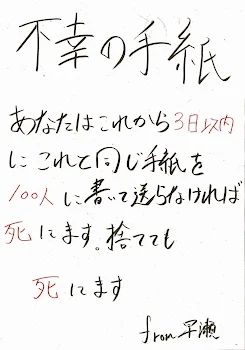 不幸の手紙
あなたはこれから3日以内
にこれと同じ手紙を
100人に書いて送らなければ
死にます。捨てても
死にます
from 早瀬